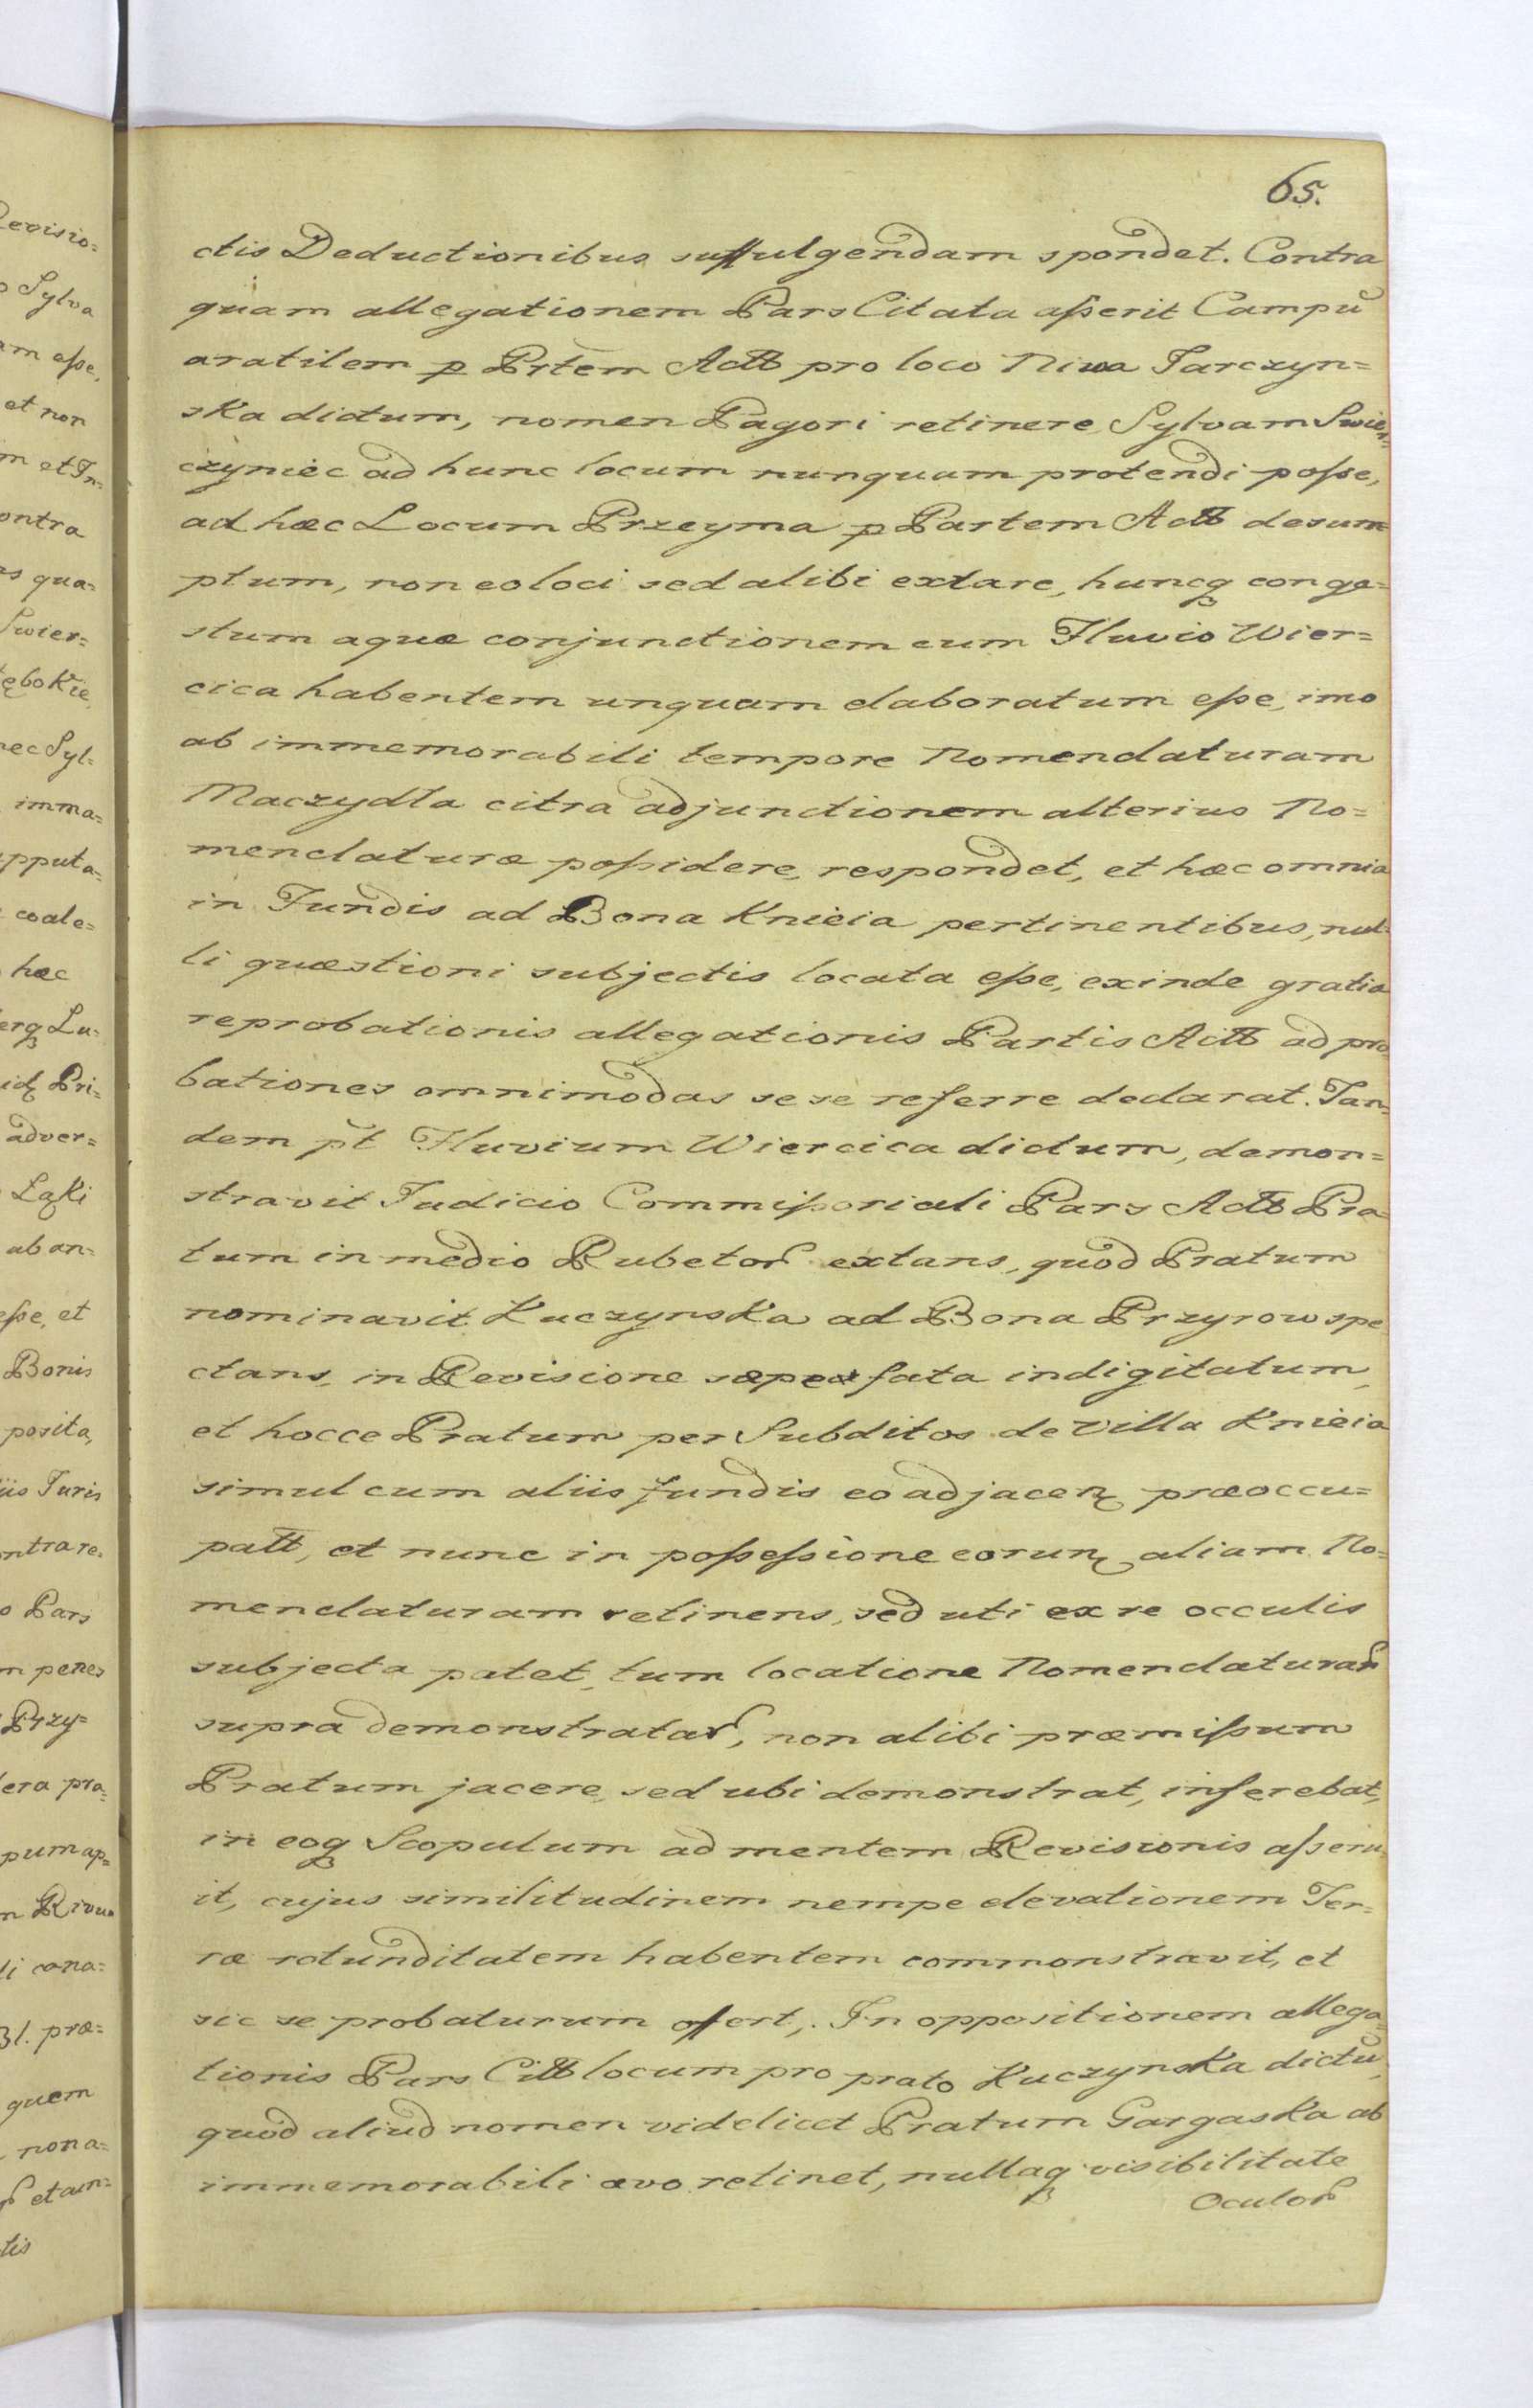 65.
ctis Deductionibus suffulgendam spondet. Contra
quam allegationem Pars Citata asserit Campū
aratilem p Prtem Actt pro loco Niwa Tarczyn=
ska dictum, nomen Pagori retinere Sylvam Swier=
czyniec ad hunc locum nunquam protendi posse,
ad hæc Locum Przeyma p Partem Actt desum=
ptum, non eo loci sed alibi extare, huncq conge=
stum aquæ conjunctionem cum Fluvio Wier=
cica habentem unquam elaboratum esse, imo
ab immemorabili tempore Nomenclaturam
Maczydła citra adjunctionem alterius No=
menclaturæ possidere, respondet, et hæc omnia
in Fundis ad Bona Knieia pertinentibus, nul=
li quæstioni subjectis locata esse, exinde gratia
reprobationis allegationis Partis Actt ad pro=
bationes omnimodas sese referre declarat. Tan=
dem pt Fluvium Wiercica dictum, demon=
stravit Judicio Commissoriali Pars Actt Pra=
tum in medio Rubetor extans, quod Pratum
nominavit Kuczynska ad Bona Przyrow spe
ctans, in Revisione fata indigitatum,
et hocce Pratum per Subditos de Villa Knieia
simul cum aliis fundis eo adjacen præoccu=
patt, et nunc in possessione eorun aliam No=
menclaturam retinens, sed uti ex re occulis
subjecta patet, tum locatione Nomenclaturar
supra demonstratar, non alibi præmissum
Pratum jacere, sed ubi demonstrat, inferebat,
in eoq Scopulum ad mentem Revisionis asseru=
it, cujus similitudinem nempe elevationem Ter=
ræ rotunditatem habentem commonstravit, et
sic se probaturum offert,. In oppositionem allega=
tionis Pars Citt locum pro prato Kuczynska dictū,
quod aliud nomen videlicet Pratum Gargaska ab
immemorabili ævo retinet, nullaq visibilitate
Oculor
Revisio=
Sylva
am esse,
et non
m et In=
ontra
qua=
Swier=
nec Syl=
imma=
pputa=
coale=
hæc
Lu=
Pri=
adver=
Łąki
ab an=
esse, et
Bonis
posita,
Juris
ntra re=
Pars
m penes
Przy=
pum ap=
Rivus
præ=
quem
nona=
etam=
tis